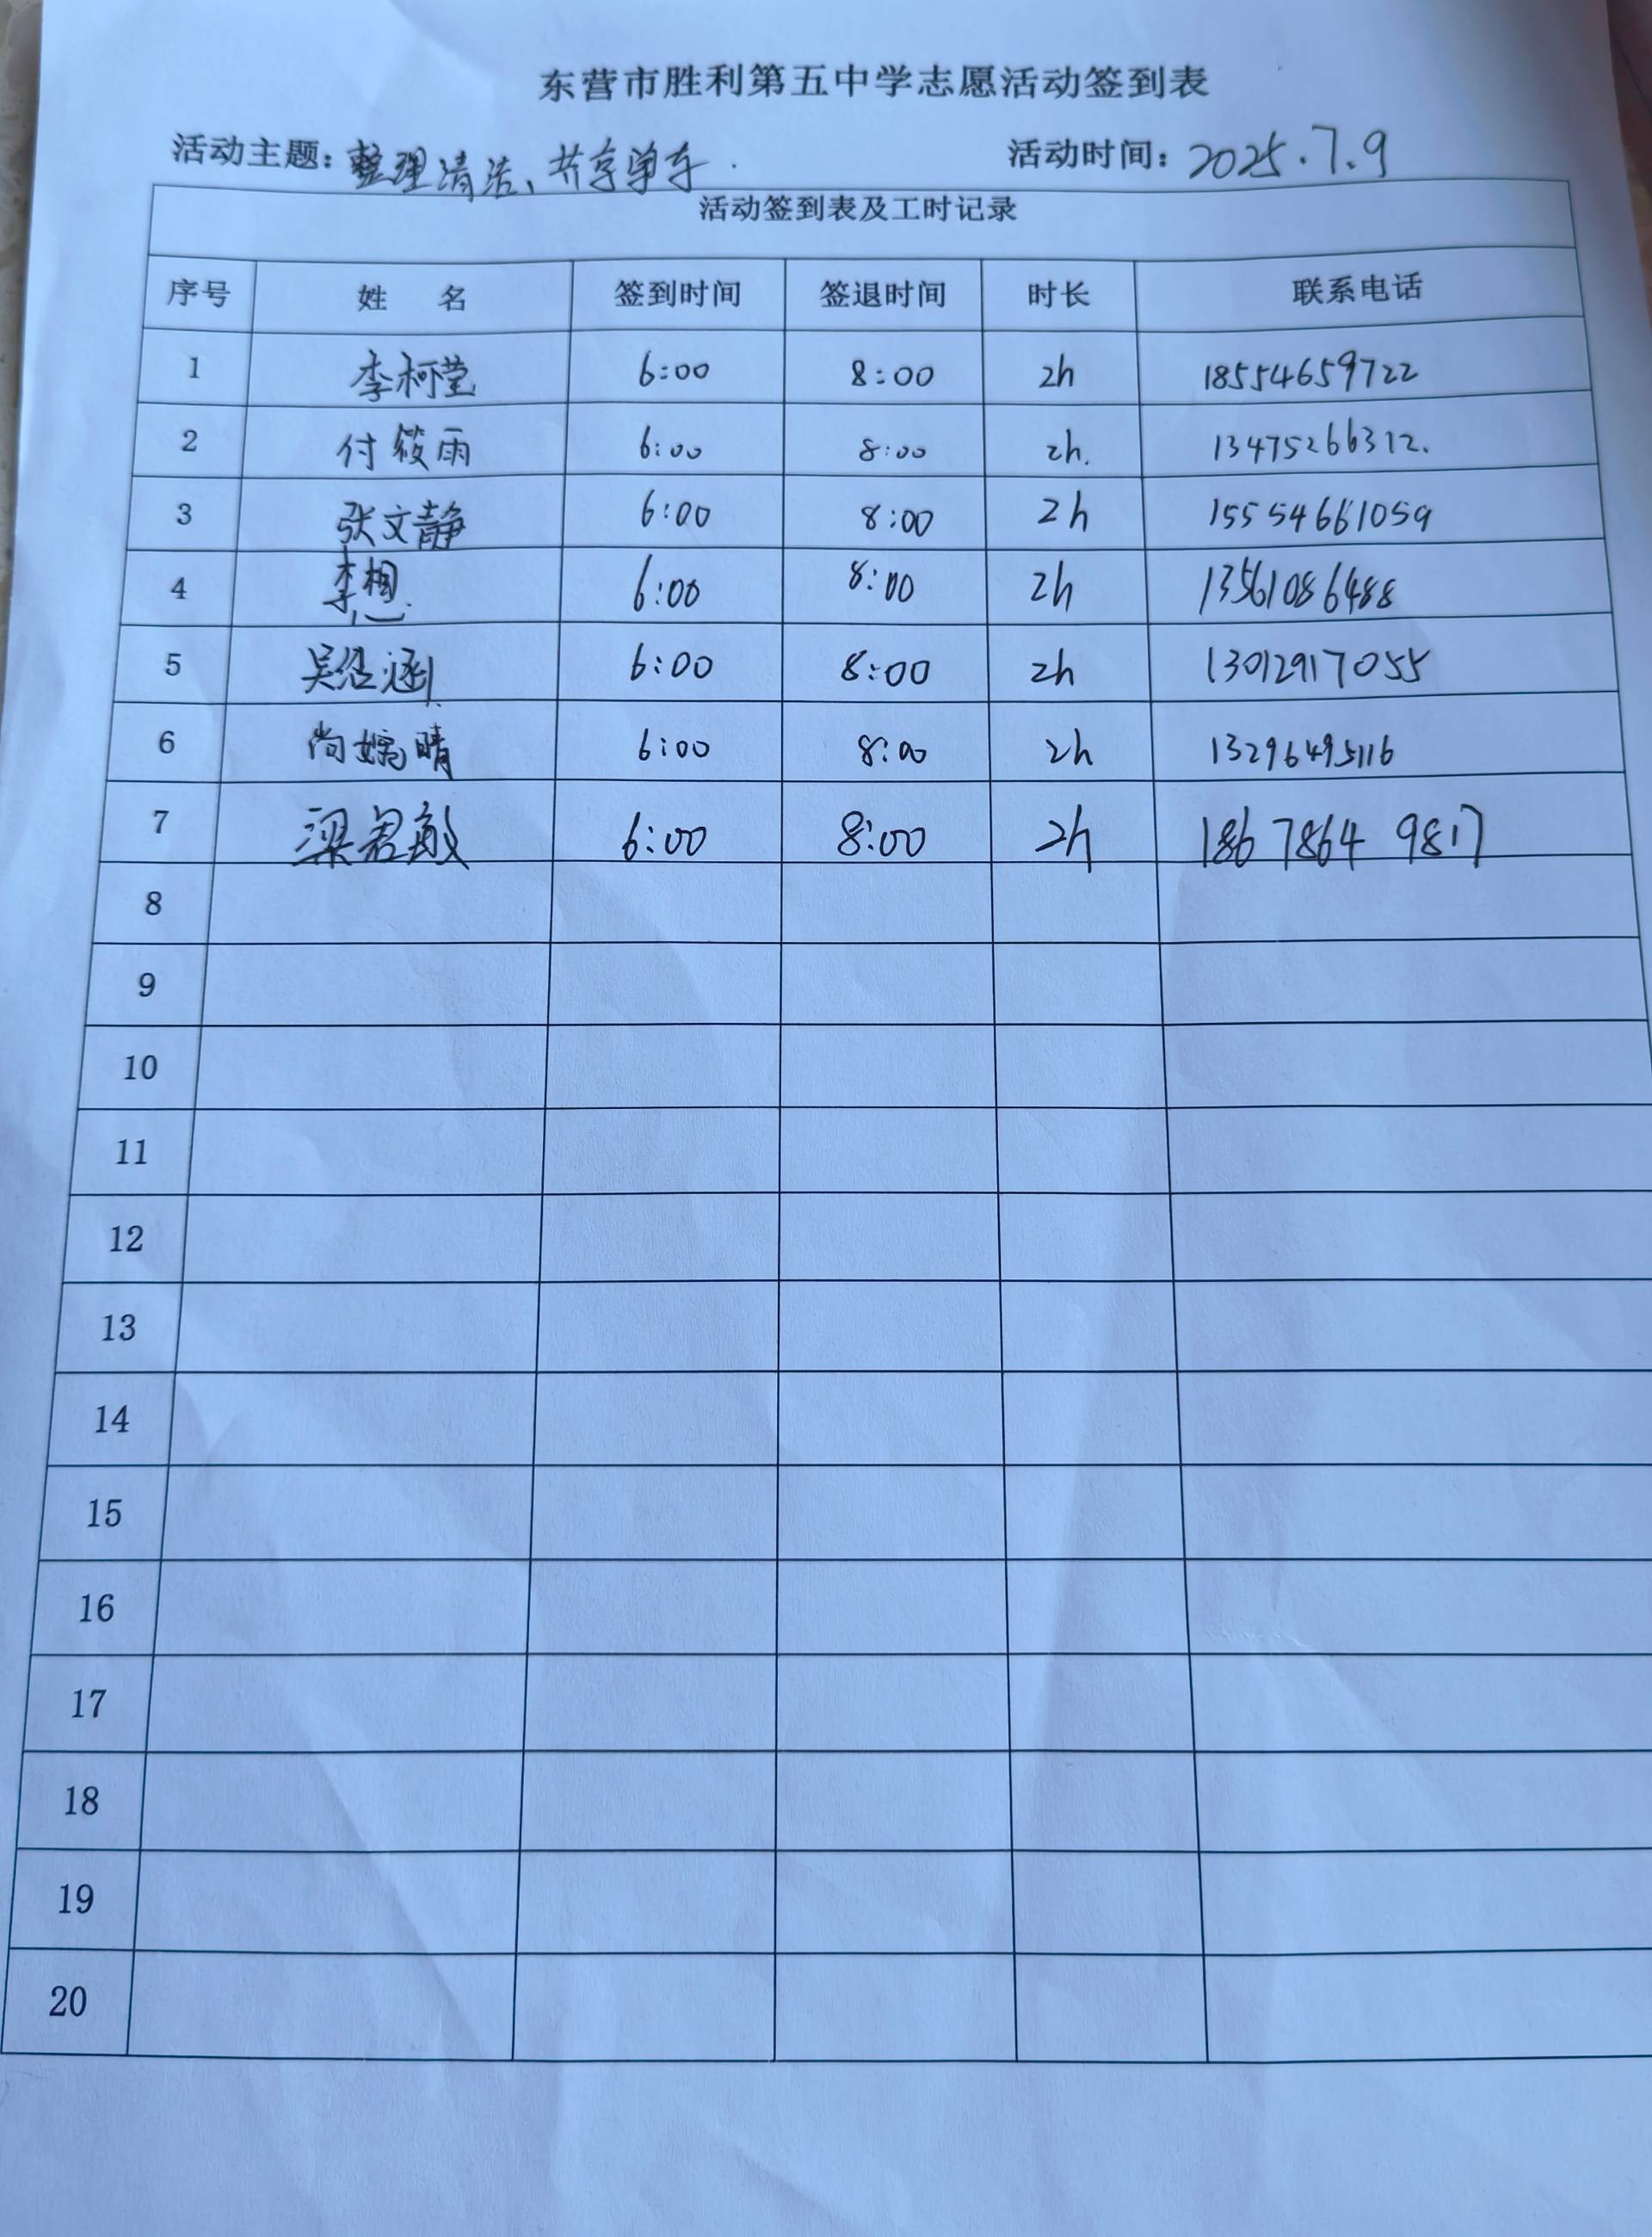 东营市胜利第五中学志愿活动签到表
活动主题：整理清洁、共享单车. 活动时间：2025.7.9
活动签到表及工时记录
序号 姓 名 签到时间 签退时间 时长 联系电话
1 李柯莹 6:00 8:00 2h 18554659722
2 付筱雨 6:00 8:00 2h. 13475266312.
3 张文静 6:00 8:00 2h 15554661059
4 李想 6:00 8:00 2h 13561086488
5 吴 涵 6:00 8:00 2h 13012917055
6 尚嫣晴 6:00 8:00 2h 13296495116
7 梁君敏 6:00 8:00 2h 186 7864 9817
8
9
10
11
12
13
14
15
16
17
18
19
20